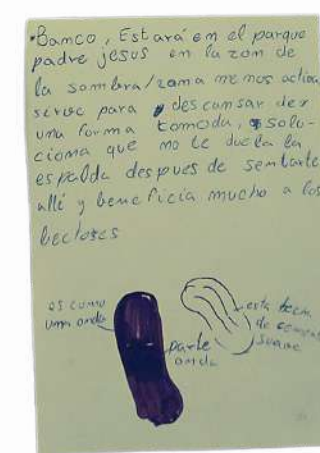 •Bamco, Estará em el parque
padre jesus em la zom de
la sombra/zama me mos activa
sirve para descamsar der
uma forma comoda, solu-
cioma que mo te duela la
espalda despues de sentarte
allí y beme ficia mucho a los
lectores
es como
uma onda
parte
onda
esta
de
suave